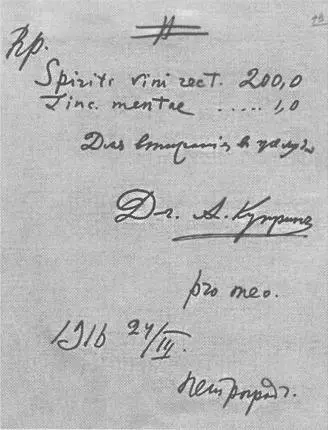 Rp.
Spirits vini rect. 200,0
Tinc. mentae ..... 1,0
Для втиранія въ желудокъ
Dr. А. Купринъ
pro meo.
1916 24/III.
Петроградъ.